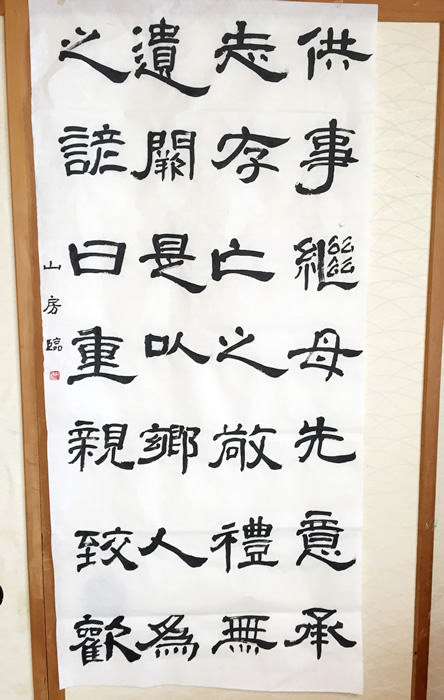 供事繼母先意承
志存亡之敬禮無
遺闕是以鄉人為
之諺曰重親致歡
山房臨